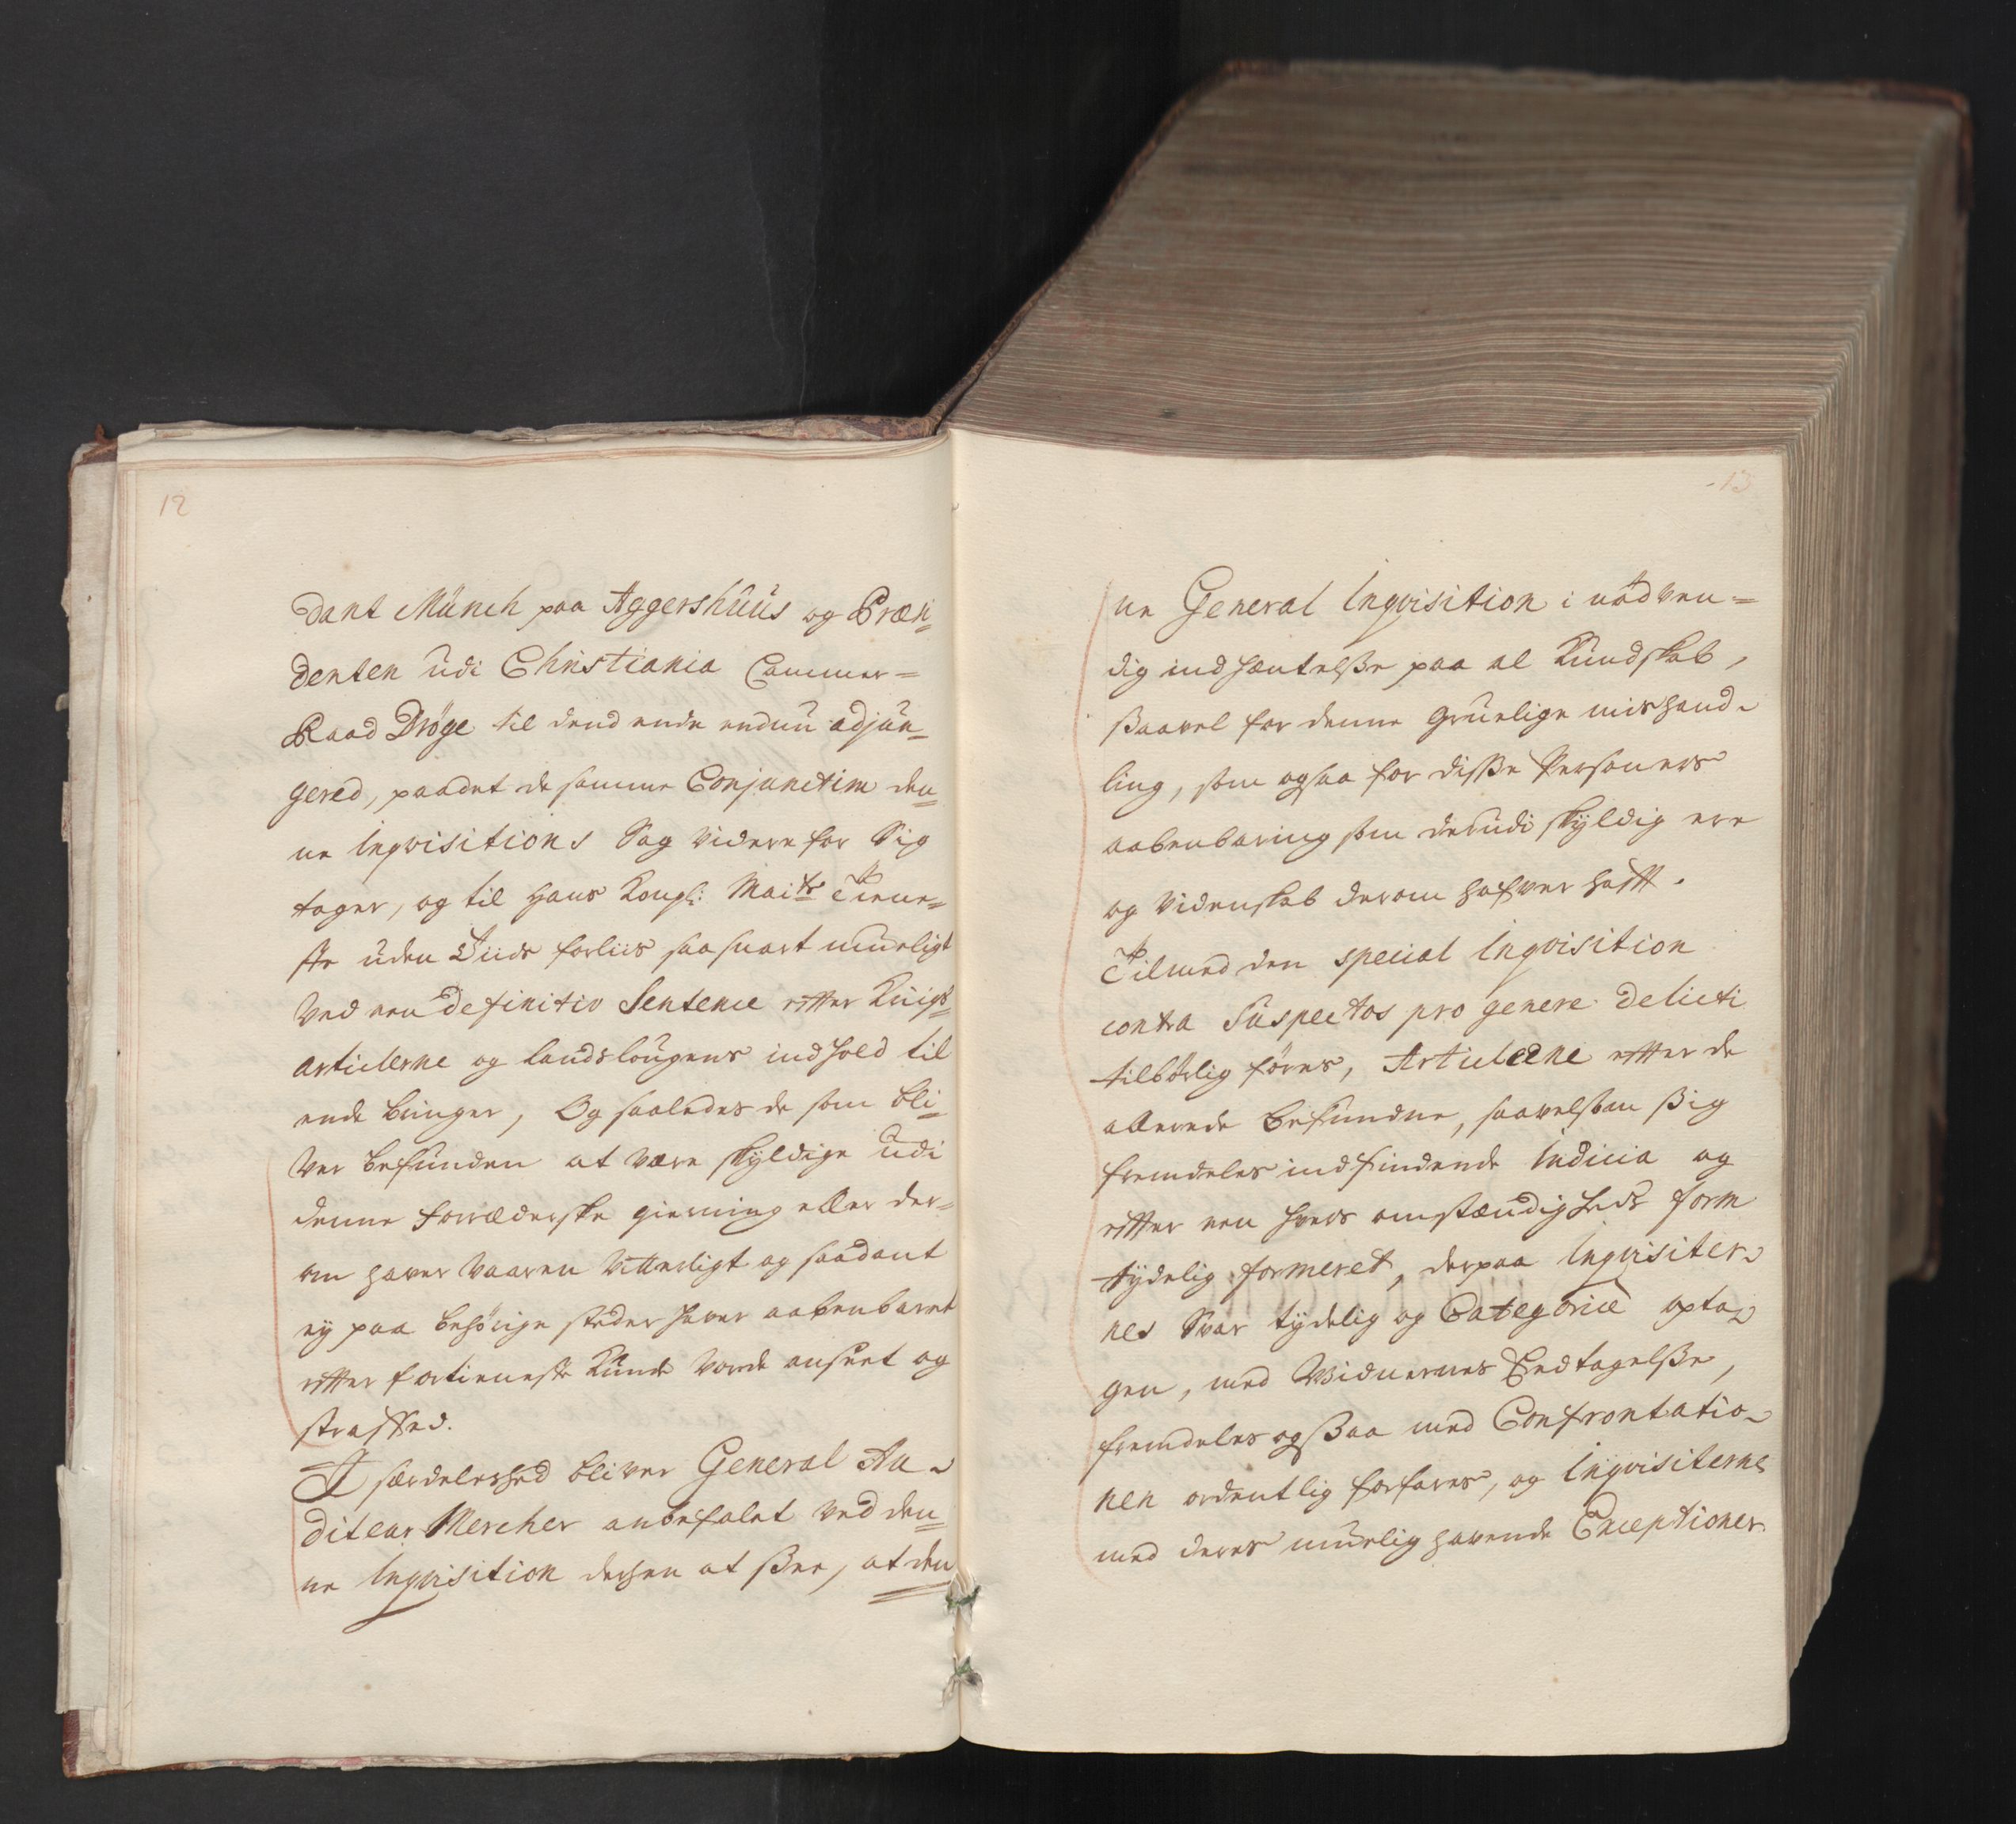 12
dant Münch paa Aggershüüs og Præsi=
denten üdi Christiania Cammer=
Raad Dröge til dend ende endnu adjün=
gered, paadet de samme Conjunctim den=
ne Inqvisitions Sag videre for Sig
tager, og til Hans Kongl: Maits Tiene=
ste uden Tiids forliis saasnart mueligt
ved een definitiv Sentence efter Krigs=
articlerne og Landslougens indhold til
ende bringer, Og saaledes de som bli=
ver befunden at være skyldige udi
denne forræderske gierning eller der=
om haver vaaren vitterligt og saadant
ey paa behörige steder haver aabenbaret
efter fortieneste kunde vorde anseet og
straffed.
I særdeleshed bliver General Au=
diteur Mercker anbefalet ved den=
ne Inqvisition derhen at see, at den
13
ne General Inqvisition i nödven=
dig indhentelsse paa al Kundskab,
saavel for denne gruelige mishand=
ling, som ogsaa for disse Persohners
aabenbaring som derudi skyldig ere
og videnskab derom hafver hafft.
Tilmed den special Inqvisition
contra Suspectos pro genere delicti
tilbörlig föres, Articlerne efter de
allerede befundne, saavelsom sig
fremdeles indfindende Indicia og
efter een hvers omstændigheds form
tydelig formeret, derpaa Inqvisiter=
nes Svar tydelig og Categoricè opta=
gen, med Vidnernes Eedtagelsse,
fremdeles ogsaa med Confrontatio=
nen ordentlig forfares, og Inqvisiterne
med deres muelig havende Exceptioner